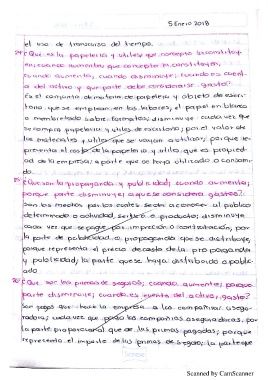 5 Enero 2018
el uso de transcurso del tiempo.
24 ¿Que es la papeleria y utiles; que concepto la constituy
en; cuando aumentan; que concepto lo constituyen,
cuando aumenta, cuando disminuye; cuando es cuenta
del activo y que parte debe considerarse gasto?
Es el conjunto de materia de papeleria y objeto de escri-
torio que se emplean, en las labores, el papel en blanco
o membretado sobre, formatos; disminuye cada vez que
se compra papeleria y utiles de escritorio; por el valor de
los materiales y utiles que se vayan a utilizar; porque re-
presenta el costo de la papeleria y utiles, que es propied-
ad de la empresa; la parte que se haya utilizado o consumi-
do.
25 ¿Que son la propaganda y publicidad; cuando aumenta;
porque parte disminuye; a que se considera gastos?
Son los medios por los cuales se da a conocer al publico
determinada o actividad, servicio o producto; disminuye
cada vez que se pague por impresión o contratación, por
la parte de publicidad o propaganda que se distribuye,
porque representa el precio de costo de la propaganda
y publicidad; la parte que se haya distribuido o public-
ado.
26 ¿Que son las primas de seguros; cuando aumenta; porque
parte disminuye; cuando es cuenta del activo; gasto?
Son pagos que hace la empresa a las compañias asegu-
radoras; cada vez que las compañias aseguradoras, por
la parte proporcional que de las primas pagadas; porque
representa el importe de las primas de seguro; la parte que
Scanned by CamScanner